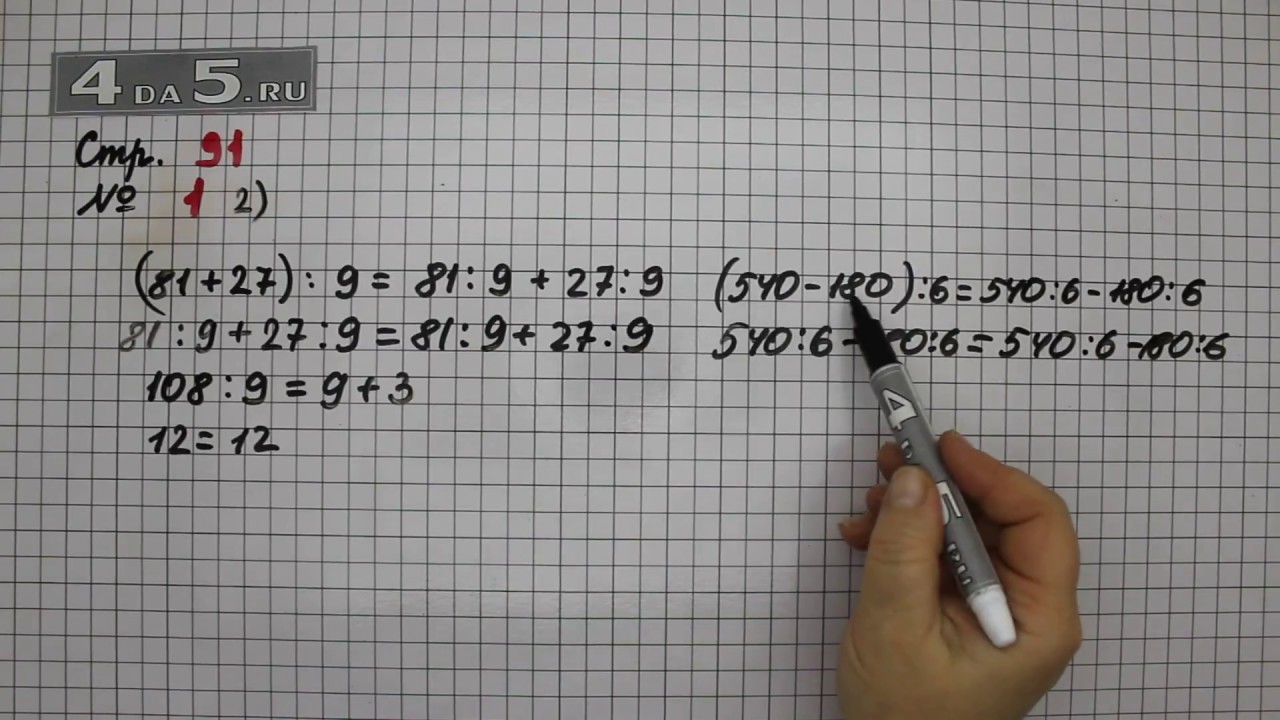 4 DA 5.RU
Стр. 91
№ 1 2)
(81+27) : 9 = 81 : 9 + 27 : 9
81 : 9 + 27 : 9 = 81 : 9 + 27 : 9
108 : 9 = 9 + 3
12 = 12
(540-180) : 6 = 540:6 - 180:6
540:6 - 80:6 = 540:6 - 180:6
4 5